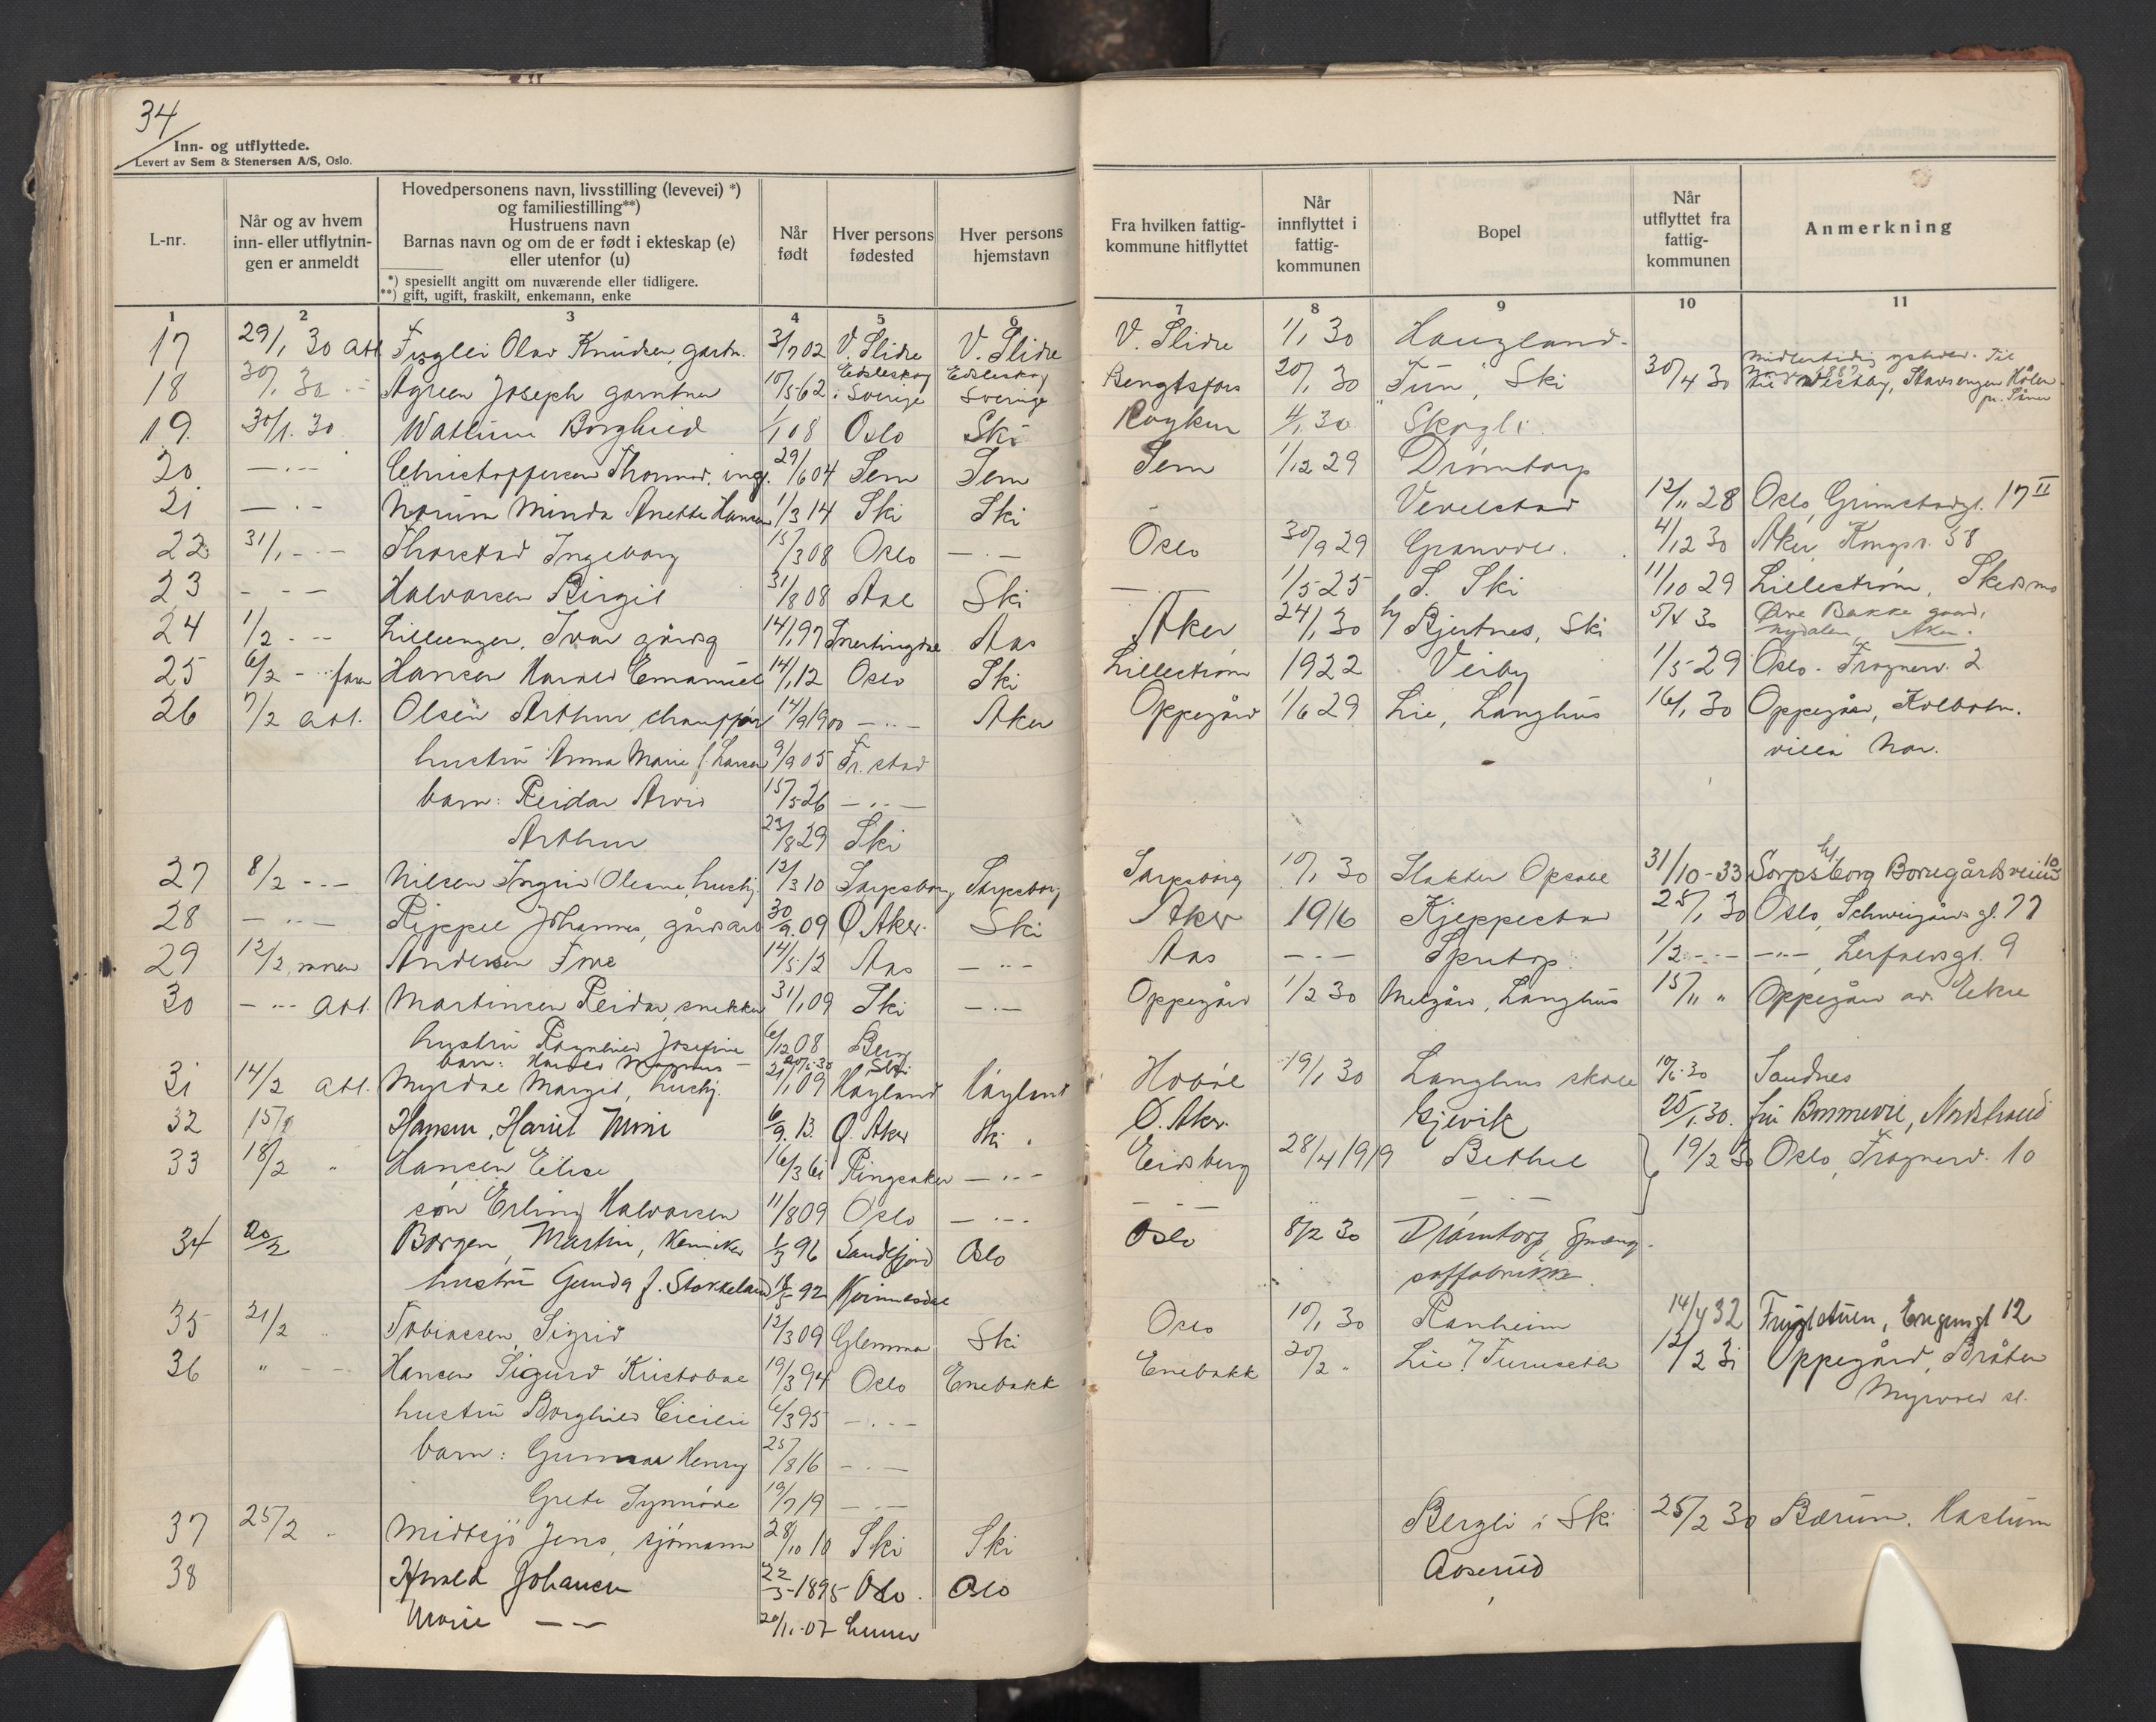 34
Inn- og utflyttede.
Levert av Sem & Stenersen A/S, Oslo.
L-nr.
Når og av hvem inn- eller utflytnin-gen er anmeldt
Hovedpersonens navn, livsstilling (levevei) *)
og familiestilling**)
Hustruens navn
Barnas navn og om de er født i ekteskap (e)
eller utenfor (u)
*) spesielt angitt om nuværende eller tidligere.
**) gift, ugift, fraskilt, enkemann, enke
Når født
Hver persons fødested
Hver persons hjemstavn
Fra hvilken fattig-kommune hitflyttet
Når innflyttet i fattig-kommunen
Bopel
Når utflyttet fra fattig-kommunen
Anmerkning
1 2 3 4 5 6 7 8 9 10 11
17 29/1 30 att Olav Knudsen, gartn. 3/7 02 V. Slidre V. Slidre V. Slidre 1/1 30 Haugland
18 30/1 30 Agreen Joseph gartner 10/5 62 Edsleskog Sverige Edsleskog Sverige Bengtsfors 20/1 30 "Tun", Ski 30/4 30 Midlertidig til Vestby, Hølen
19. 30/1. 30 Borghild 1/1 08 Oslo Ski Røyken 4/1 30 Skogli
20 — · — Christoffersen Thormod, ing. 29/6 04 Sem Sem Sem 1/12 29 Drømtorp
21 — · — Norum Minda Anette Hansen 1/3 14 Ski Ski - Vevelstad 12/11 28 Oslo, Grimstadgt. 17 II
22 31/1 - — Thorstad Ingeborg 15/3 08 Oslo — · — Oslo 30/9 29 Granvol. 4/12 30 Aker, Kongsv. 58
23 - - - Halvorsen Birgit 31/8 08 Aal Ski — 1/5 25 S. Ski 11/10 29 Lillestrøm, Skedsmo
24 1/2 - - Lilleenger, Ivar gårdsg 14/1 97 Snertingdal Aas Aker 24/1 30 h/ Bjertnes, Ski 5/4 30 Øvre Bakke gaard, Nydalen, Aker.
25 6/2 - faren Hansen Harald Emanuel 14/1 12 Oslo Ski Lillestrøm 1922 Veiby 1/5 29 Oslo - Frognerv. 2
26 7/2 att. Olsen Arthur, chauffør 14/9 1900 — · — Aker Oppegård 1/6 29 Lie, Langhus 16/1 30 Oppegård, Kolbotn.
hustru Anna Marie f. Larsen 9/9 05 Fr.stad villa Nor.
barn: Reidar Arvid 15/5 26 — · —
Arthur 23/8 29 Ski
27 8/2 - - Nilsen Ingrid Oleane, hushj. 12/3 10 Sarpsborg Sarpsborg Sarpsborg 10/1 30 Slakter Opsahl 31/10-33 Sarpsborg Borregårdsveien 10
28 — · — Rippel Johannes, gårdsarb 30/9. 09 Ø. Aker. Ski Aker 1916 Kjeppestad 25/1 30 Oslo, Schweigårds gt. 77
29 12/2, moren Andersen Tove 14/5 12 Aas — · — Aas - - - Sputrop 1/2 - - — · —, Lerfaldsgt. 9
30 — · — att. Martinsen Reidar, snekker 31/1 09 Ski — · — Oppegård 1/2 30 Melgård, Langhus 15/11 " Oppegård av. Ekre
hustru Ragnhild Josefine 6/12 08 Berg
barn: Harald Magnus — Ski
31 14/2 att. Myrdal Margit, hushj. 21/1 09 Høyland Høyland Hobøl 19/1 30 Langhus skole 10/6-30 Sandnes
32 15/ Hansen, Hariet Mimi 6/9. 13. Ø. Aker Ski. Ø. Aker. Gjevik 25/1.30. fru Bonnevie, Nordstrand
33 18/2 " Hansen Elise 16/3 61 Ringsaker — · — Eidsberg 28/4 1919 Bethel 19/2 30 Oslo, Frognerv. 10
søn Erling Halvorsen 11/8 09 Oslo — · — — · — — · —
34 20/2 Borgen, Martin, Kemiker 1/3 96 Sandefjord Oslo Oslo 8/2 30 Drømtorp, Spreng-
hustru Gunda f. Stokkeland 18/5 92 Kvinnesdal stoffabrikk.
35 21/2 " Tobiassen, Sigrid 12/3 09 Glemmen Ski Oslo 10/1 30 Ranheim 14/4 32
36 " - — Hansen Sigurd Kristobal 19/3 94 Oslo Enebakk Enebakk 20/2 " Lie / Furuseth 12/2 31 Oppegård, Bråten
hustru Borghild Cicilie 6/3 95 — · — Myrvold st.
barn: Gunnar Henry 25/8 16 — · —
Grete Synnøve 19/7 19 — · —
37 25/2 " Midtsjø Jens, sjømann 28/10 10 Ski Ski Bergli i Ski 25/2 30 Bærum. Haslum
38 Harald Johansen 22/3-1895 Oslo. Oslo Aaserud
Marie — — 20/11-07